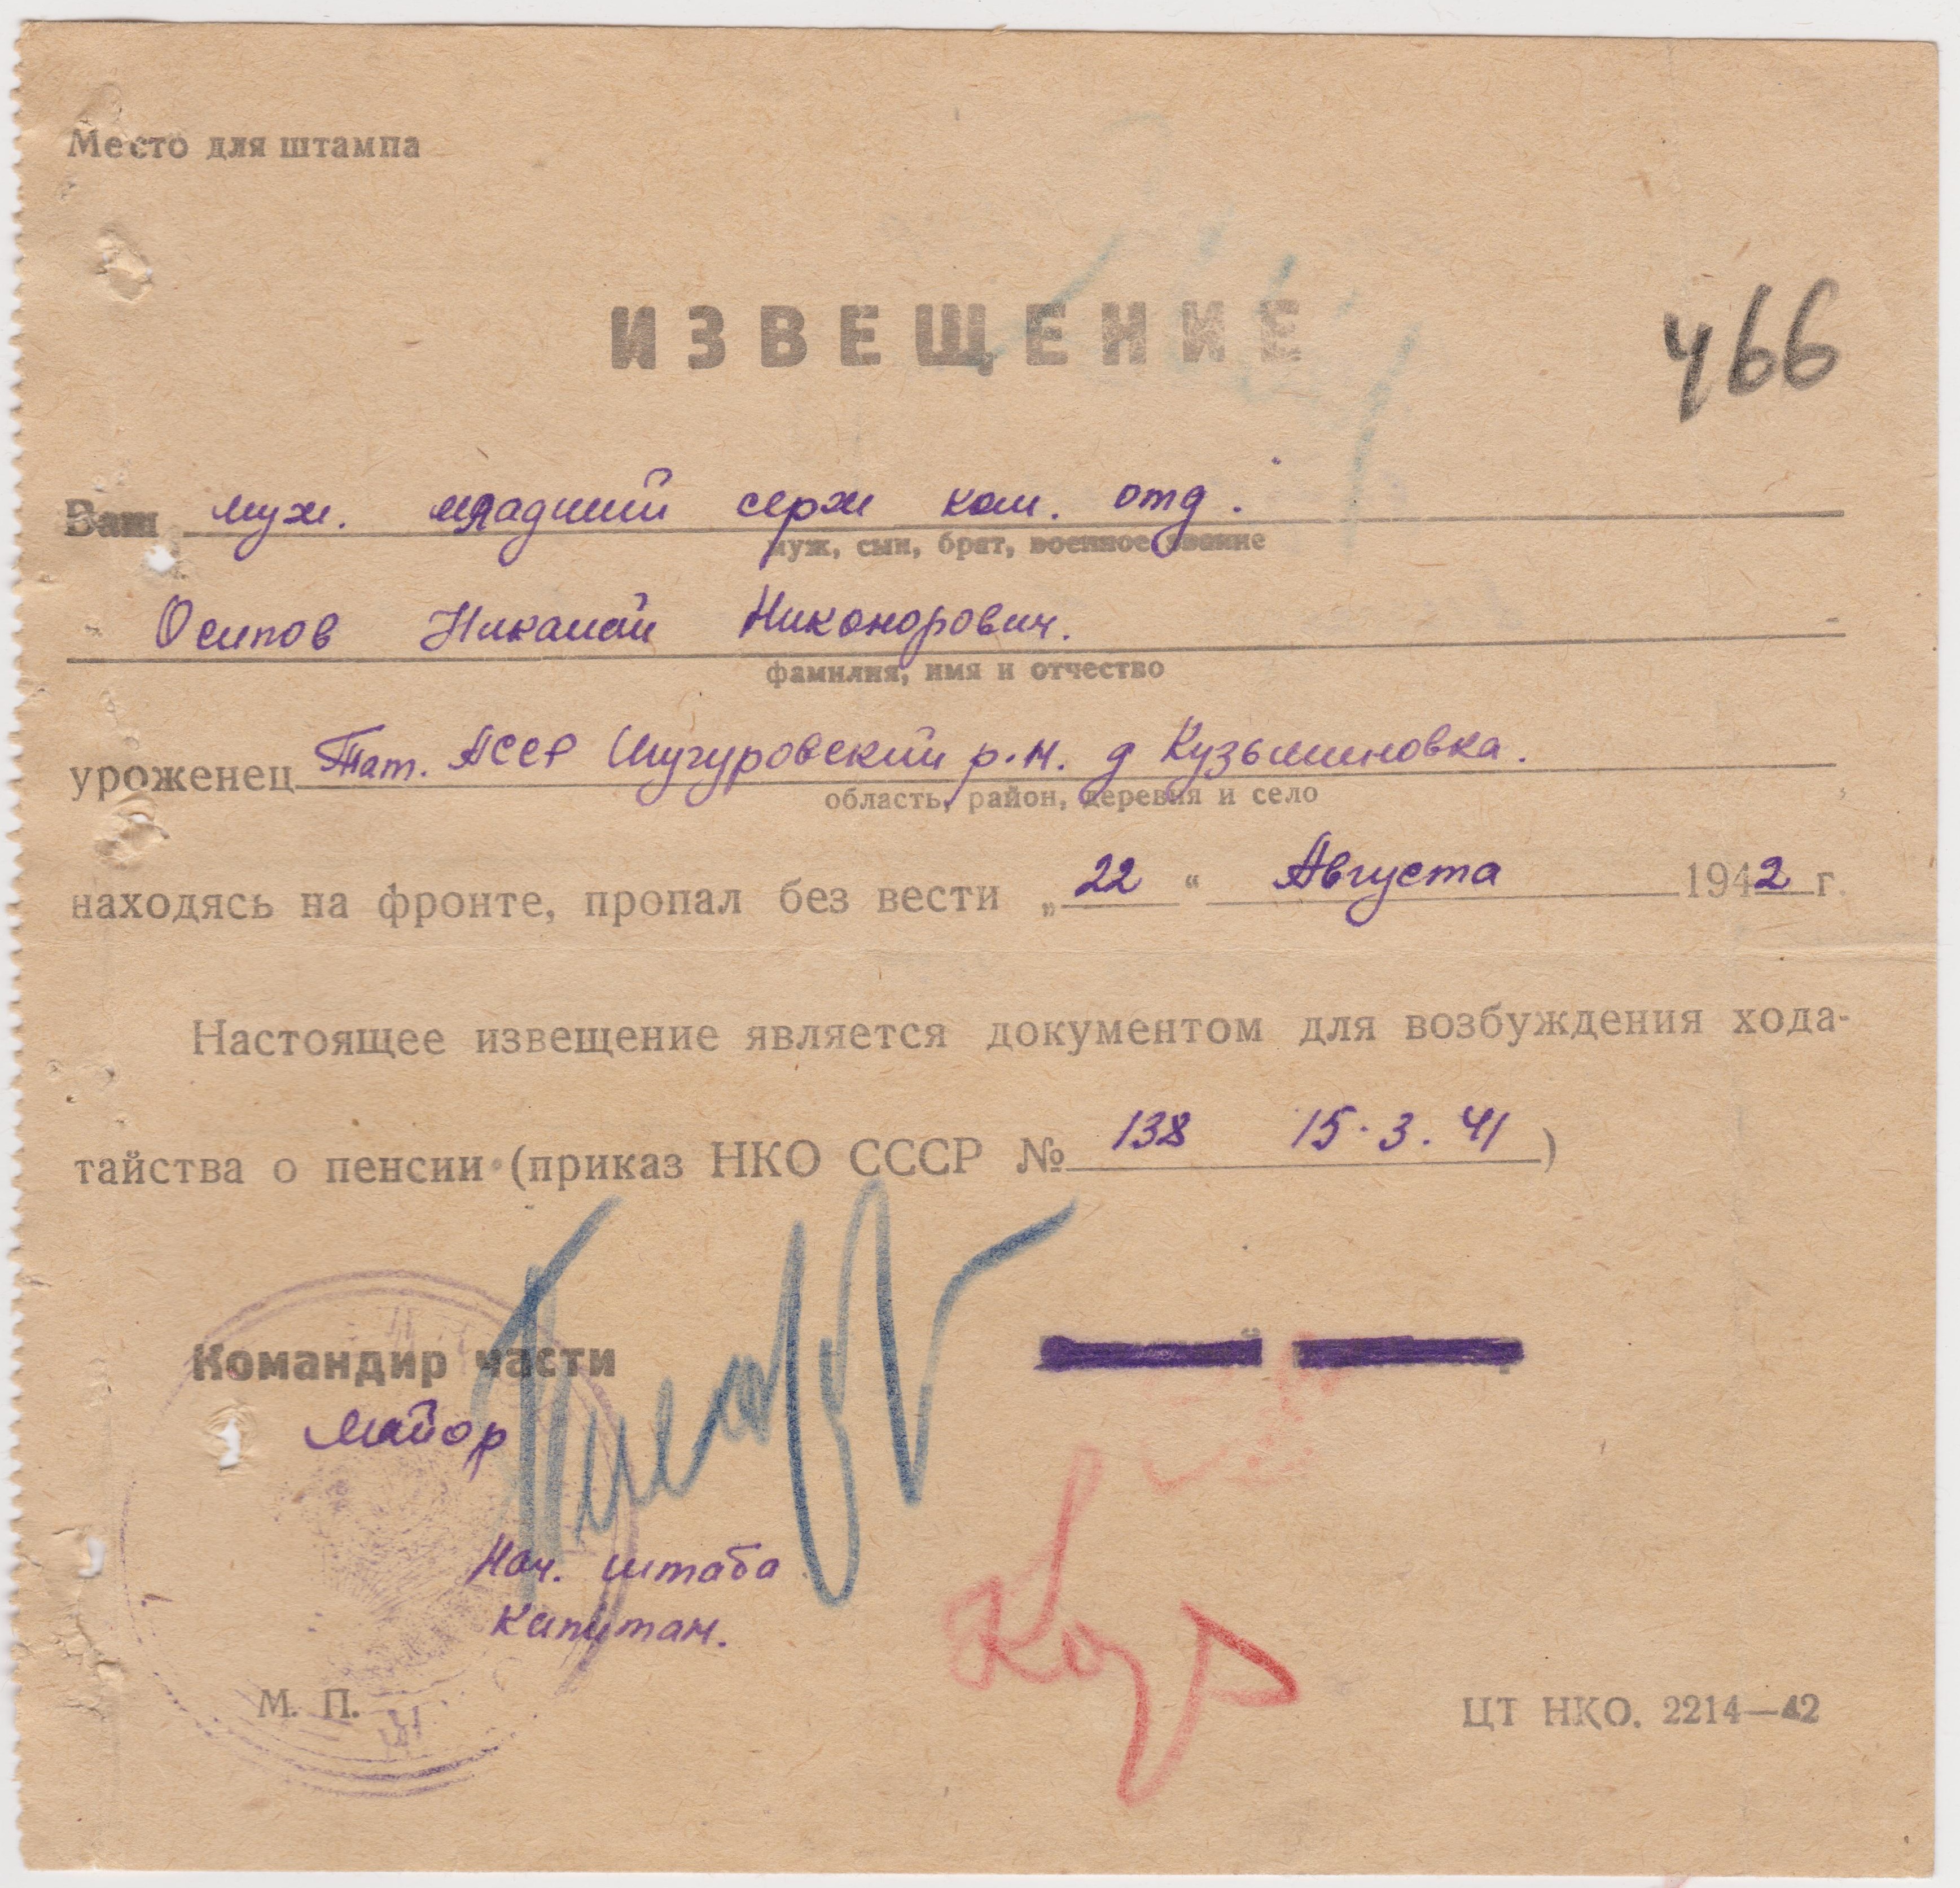 Место для штампа
ИЗВЕЩЕНИЕ
466
Ваш муж. младший серж ком. отд.
муж, сын, брат, военное звание
Осипов Николай Никонорович.
фамилия, имя и отчество
уроженец Тат. АССР Шугуровский р.н. д Кузьминовка.
область, район, деревня и село
находясь на фронте, пропал без вести „22“ Августа 1942 г.
Настоящее извещение является документом для возбуждения хода-
тайства о пенсии (приказ НКО СССР № 138 15.3.41)
Командир части
майор
Нач. штаба
Капитан.
М. П.
ЦТ НКО. 2214—42